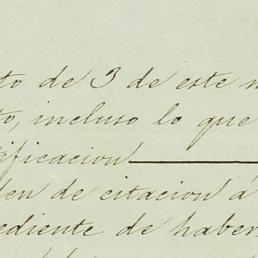 to de 3 de este
to, incluso lo que
ificacion
den de citacion á
ediente de haber